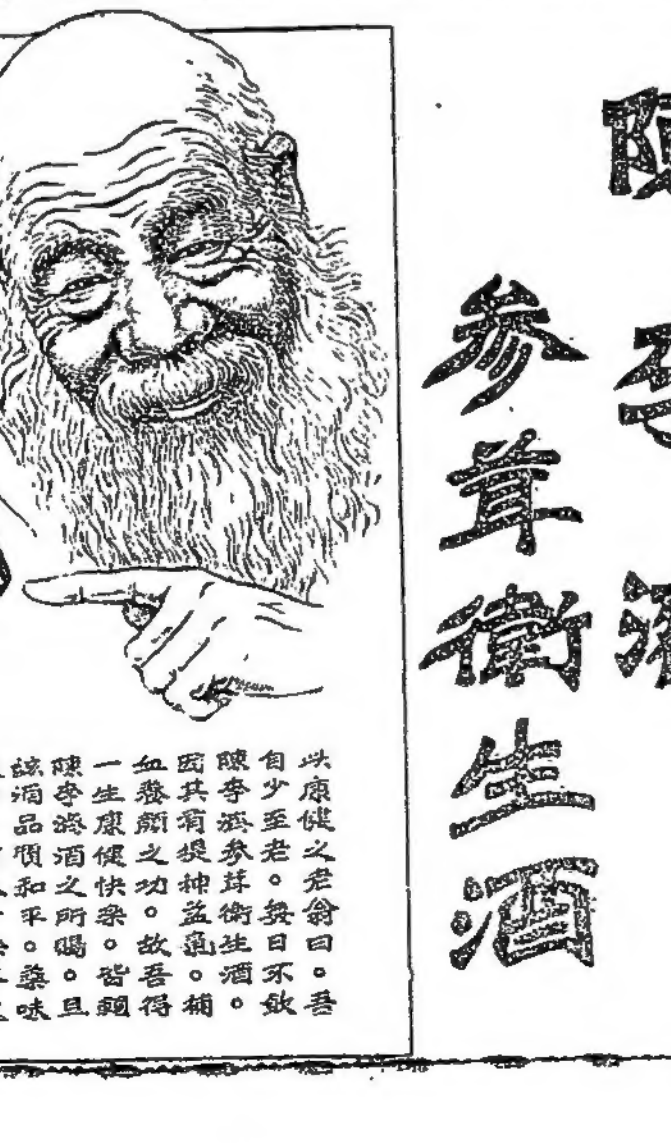 陳李濟
參茸衛生酒
此康健之老翁曰。吾
自少至老。無日不飲
陳李濟參茸衛生酒。
因其有提神益氣。補
血養顏之功。故吾得
一生康健快樂。皆賴
陳李濟酒之所賜。且
該酒品順和平。藥味